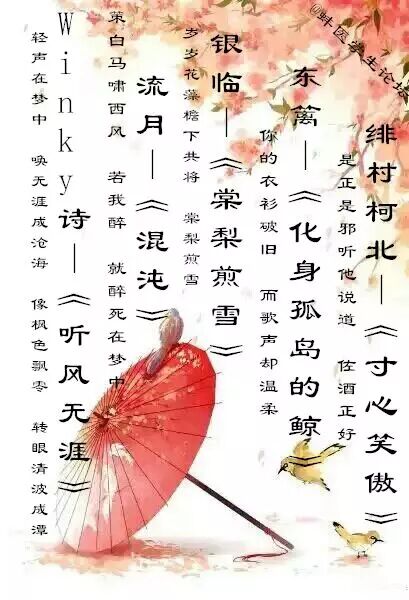 @蚌医学生论坛
绯村柯北—《寸心笑傲》
是正是邪听他说道 佐酒正好
东篱—《化身孤岛的鲸》
你的衣衫破旧 而歌声却温柔
银临—《棠梨煎雪》
岁岁花藻檐下共将 棠梨煎雪
流月—《混沌》
策白马啸西风 若我醉 就醉死在梦中
Winky诗—《听风无涯》
轻声在梦中 唤无涯成沧海 像枫色飘零 转眼清波成潭